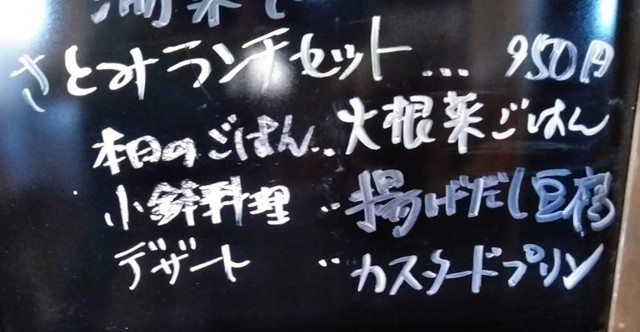 さとみランチセット... 950円
本日のごはん..大根菜ごはん
小鉢料理..揚げだし豆腐
デザート..カスタードプリン